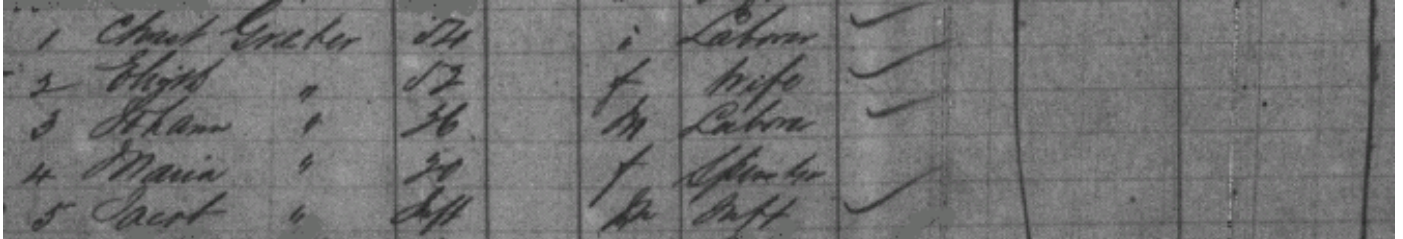 1 Christ Graber 54 " Laborer
2 Elisth " 52 f Wife
3 Johann " 26 m Laborer
4 Maria " 20 f Spinster
5 Jacob " Inft m Inft